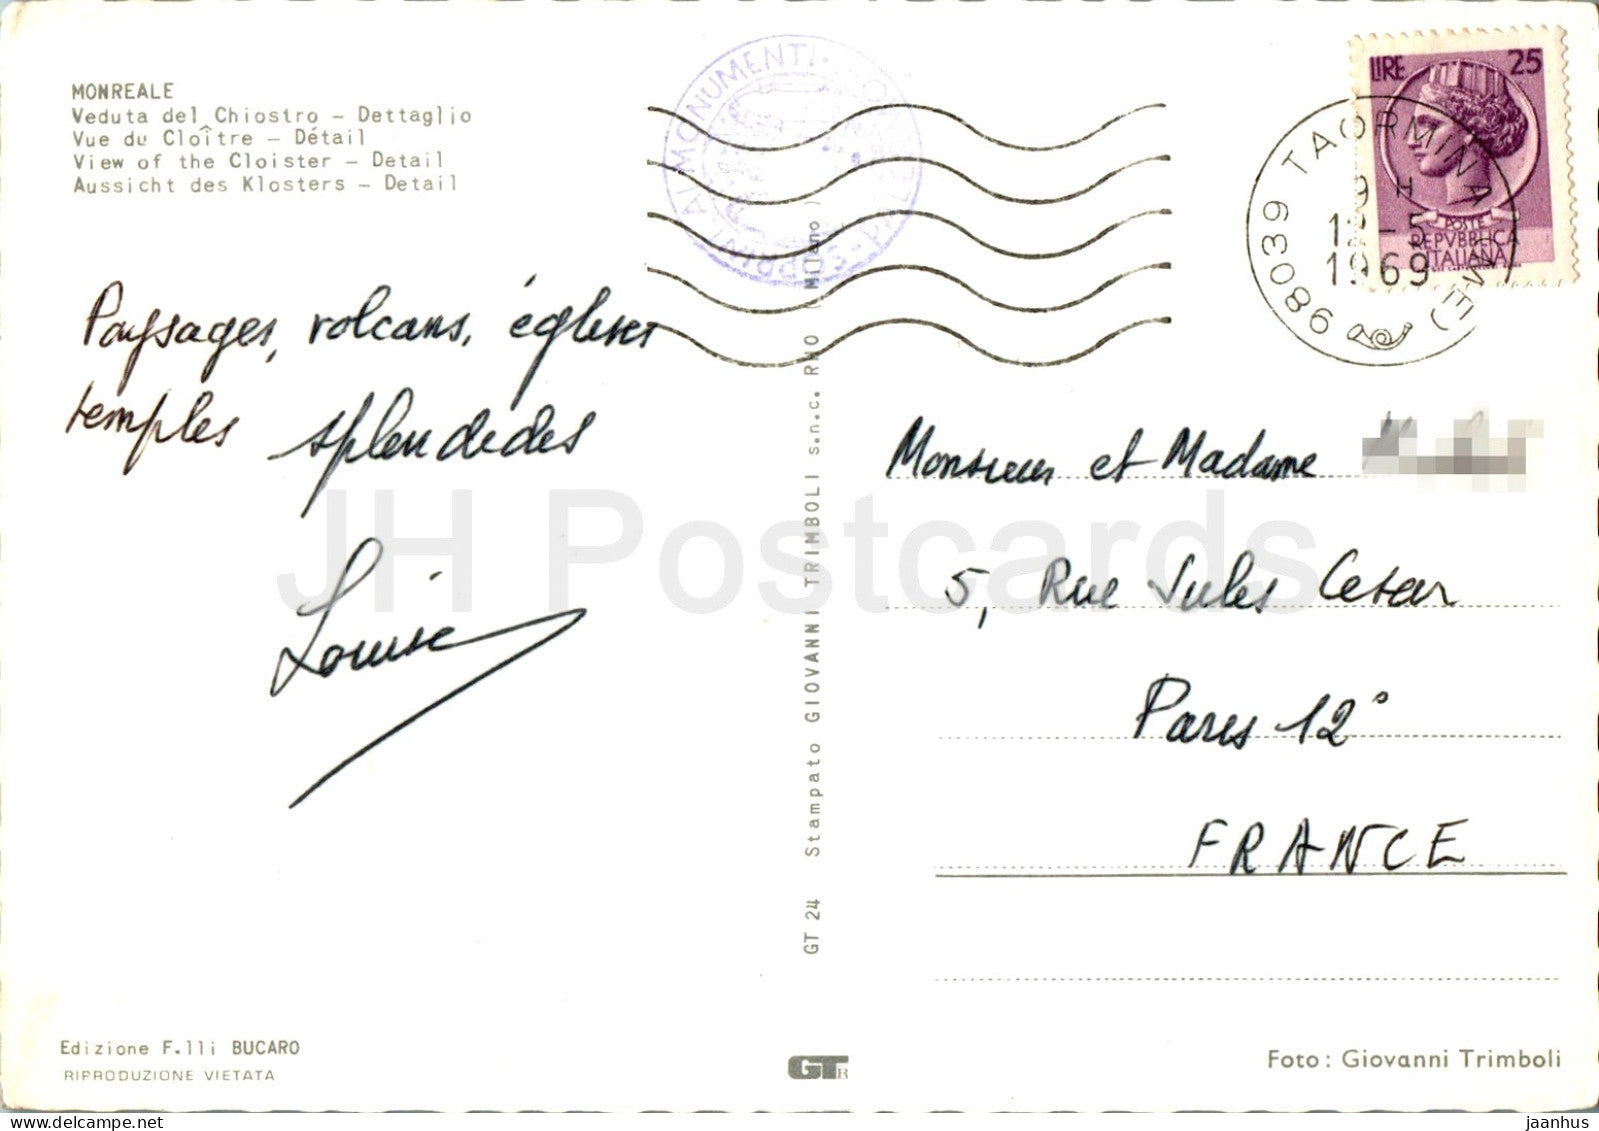 MONREALE
Veduta del Chiostro – Dettaglio
Vue du Cloître – Détail
View of the Cloister – Detail
Aussicht des Klosters – Detail
MONUMENTI
LIRE 25
POSTE
REPVBBLICA
ITALIANA
98039 TAORMINA (ME)
9 H
1969
Paysages, volcans, églises
temples splendides
Louise
Monsieur et Madame
5, Rue Jules Cesar
Paris 12°
FRANCE
GT 24 Stampato GIOVANNI TRIMBOLI s.n.c. RHO (Milano)
JH Postcards
Edizione F.lli BUCARO
RIPRODUZIONE VIETATA
GTR
Foto: Giovanni Trimboli
jaanhus @ delcampe.net